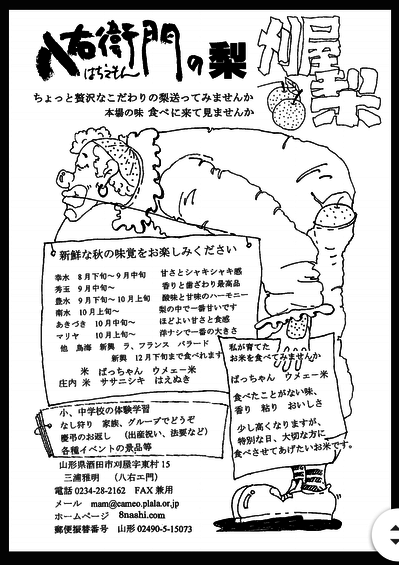 八右衛門の梨
はちえもん
刈屋梨
ちょっと贅沢なこだわりの梨送ってみませんか
本場の味 食べに来て見ませんか
新鮮な秋の味覚をお楽しみください
幸水 8月下旬〜9月中旬 甘さとシャキシャキ感
秀玉 9月中旬〜 香りと歯ざわり最高品
豊水 9月下旬〜10月上旬 酸味と甘味のハーモニー
南水 10月上旬〜 梨の中で一番甘いです
あきづき 10月中旬〜 ほどよい甘さと食感
マリヤ 10月上旬〜 洋ナシで一番の大きさ
他 鳥海 新興 ラ、フランス バラード
新興 12月下旬まで食べれます
米 ばっちゃん ウメェー米
庄内米 ササニシキ はえぬき
私が育てた
お米を食べてみませんか
ばっちゃん ウメェー米
食べたことがない味、
香り 粘り おいしさ
少し高くなりますが、
特別な日、大切な方に
食べさせてあげたいお米です。
小、中学校の体験学習
なし狩り 家族、グループでどうぞ
慶弔のお返し （出産祝い、法要など）
各種イベントの景品等
山形県酒田市刈屋字東村15
三浦雅明 （八右エ門）
電話 0234-28-2162 FAX兼用
メール mam@cameo.plala.or.jp
ホームページ 8nashi.com
郵便振替番号 山形 02490-5-15073